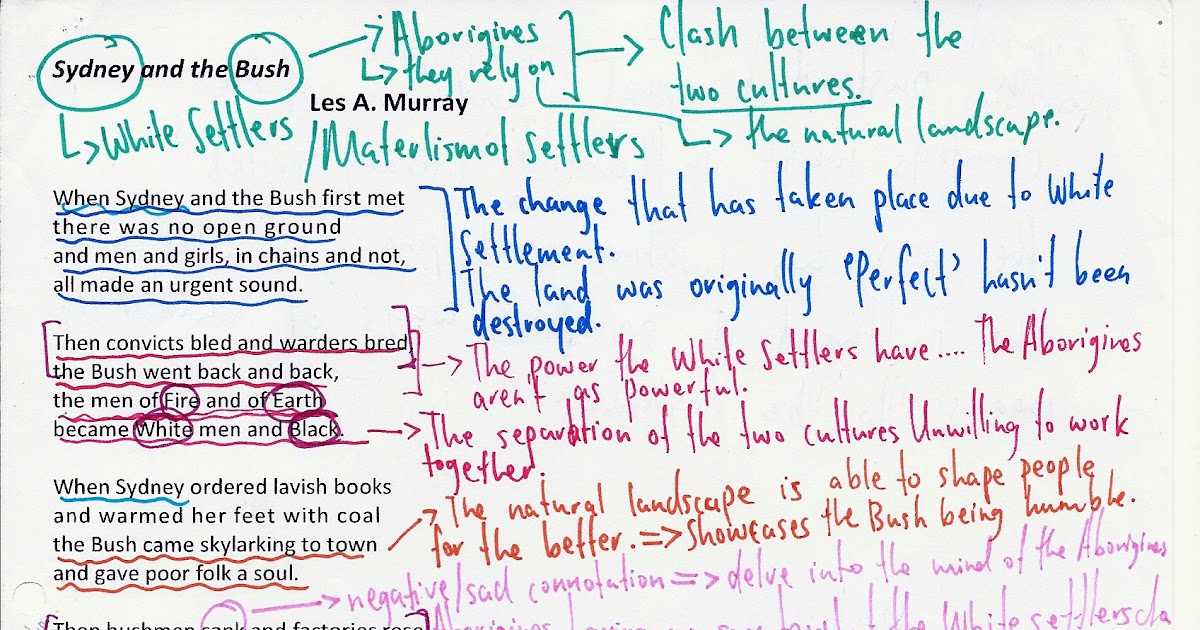 Sydney and the Bush
Les A. Murray
→ Aborigines
↳ they rely on
→ Clash between the
two cultures.
↳ the natural landscape.
↳ White Settlers
/Materlism of Settlers
When Sydney and the Bush first met
there was no open ground
and men and girls, in chains and not,
all made an urgent sound.
The change that has taken place due to White
Settlement.
The land was originally 'Perfect' hasn't been
destroyed.
Then convicts bled and warders bred,
the Bush went back and back,
the men of Fire and of Earth
became White men and Black.
→ The power the White Settlers have.... The Aborigines
aren't as powerful.
→ The separation of the two cultures Unwilling to work
together.
When Sydney ordered lavish books
and warmed her feet with coal
the Bush came skylarking to town
and gave poor folk a soul.
→ The natural landscape is able to shape people
for the better. => Showcases the Bush being humble.
→ negative/sad connotation => delve into the mind of the Aborigines
Then bushmen sank and factories rose
Aborigines the White settlers